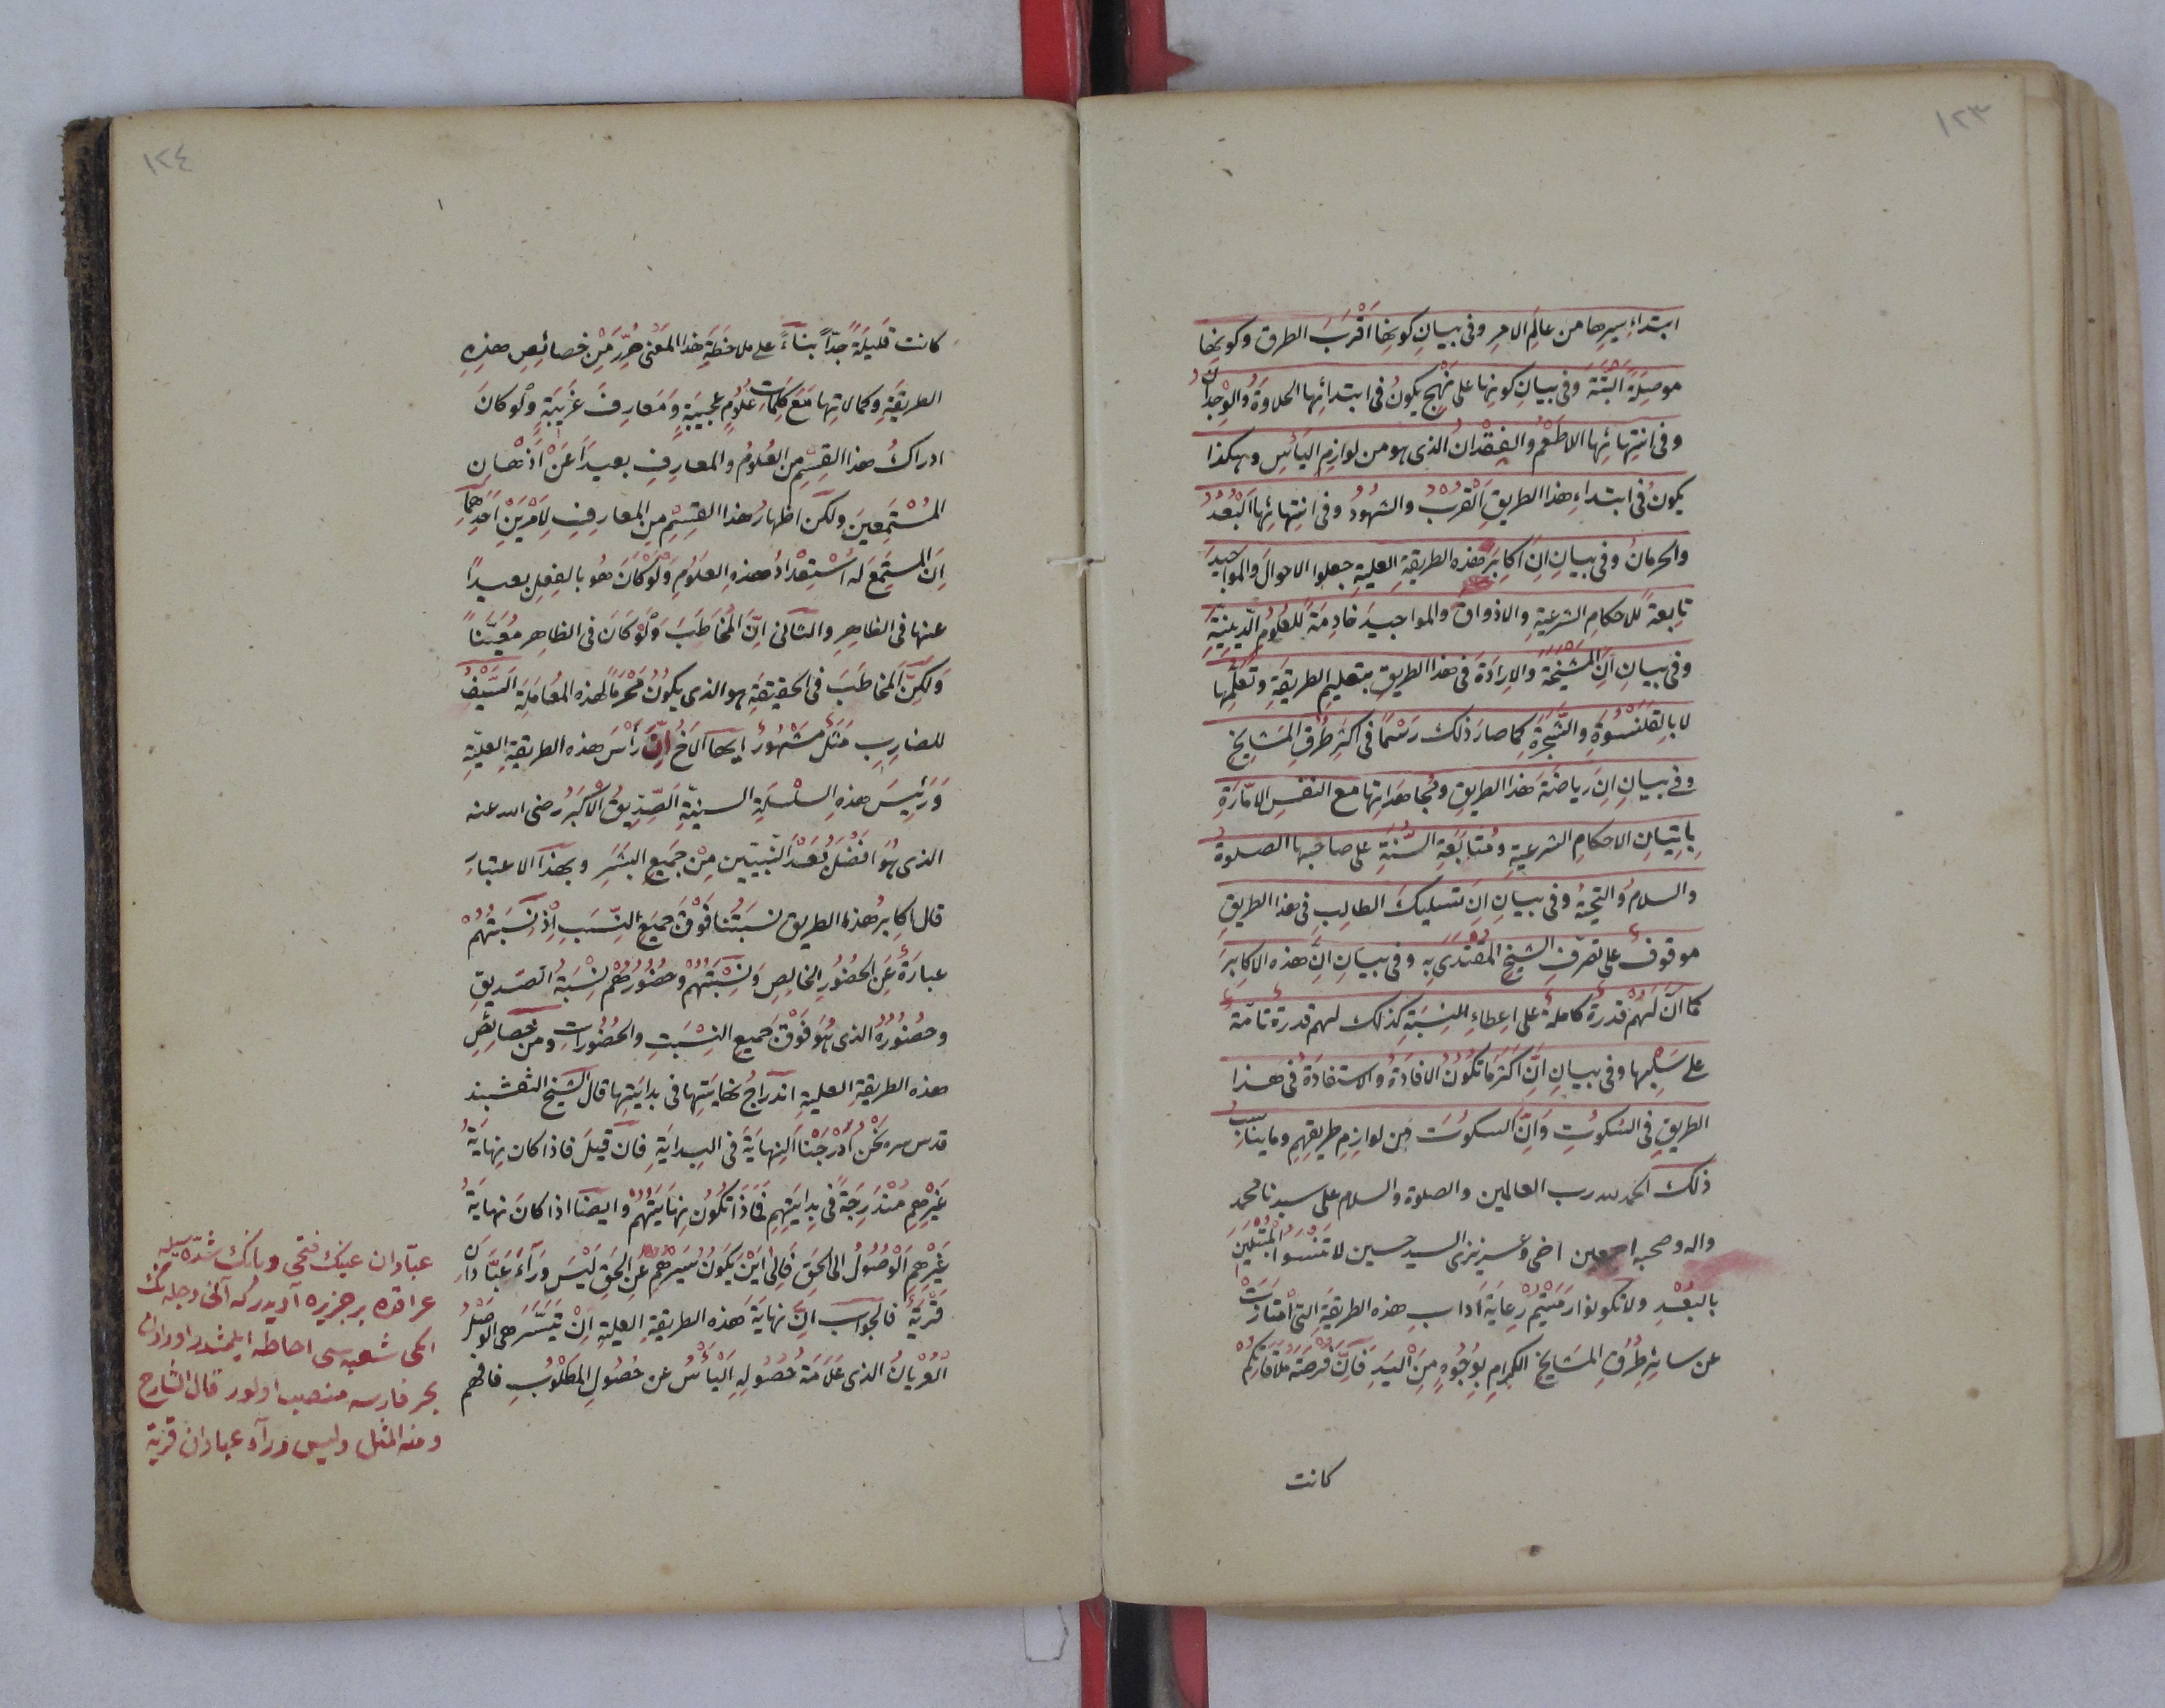 ١٢٣
ابتداءِ سيرِها من عالَمِ الامرِ وفى بيانِ كونِها اَقْرَبَ الطرق وكونِها
موصِلَةً اَلْبَتَّةَ وفى بيانِ كونِها على نَهْجٍ يكونُ فى ابتدائِها الحلاوَةُ والوِجْدانُ
وفى انتِهائِها اللاطَعْمُ والفِقْدانُ الذى هو من لوازِمِ اليَأْسِ وهكذا
يكونُ فى ابتداءِ هذا الطريقِ اَلْقُرْبُ والشهُودُ وفى انتِهائِها اَلْبُعْدُ
والحرمانُ وفى بيانِ اِنَّ اَكابِرَ هذه الطريقةِ العليةِ جعلوا الاحوالَ والمواجيدَ
تابِعةً للاحكامِ الشرعيةِ والاذواقَ والمواجيدَ خادِمَةً لِلعُلومِ الدّينيّةِ
وفى بيانِ اَنَّ المَشْيَخَةَ والاِرادَةَ فى هذا الطريقِ بتعليمِ الطريقةِ وتعَلُّمِها
لا بِالقَلَنْسُوَةِ والشَّجَرَةِ كما صارَ ذلك رَسْمًا فى اكثرِ طُرُقِ المَشايِخِ
وفى بيانِ اِنَ رياضَةَ هذا الطريقِ ومُجاهَداتِها مع النفسِ الامّارَةِ
بِاِتيانِ الاحكامِ الشرعيةِ ومُتابَعَةِ السُّنَّةِ على صاحبِها الصلوةُ
والسلامُ والتحيّةُ وفى بيانِ اِنَ تسليكَ الطالِبِ فى هذا الطريقِ
موقوفٌ على تصرّفِ الشيخِ المُقْتَدَى بِه وفى بيانِ اَنَّ هذه الاكابِرَ
كما اَنَّ لَهُمْ قدرَةً كاملةً على اِعطاءِ النِسْبَةِ كذلك لهم قدرةٌ تامّةٌ
على سَلْبِها وفى بيانِ اَنَّ اكثرَ ما تكونُ الافادَةُ والاستفادَةُ فى هذا
الطريقِ فى السُّكوتِ وَاَنَّ السكوتَ مِن لوازِمِ طريقِهِم وما يناسِبُ
ذلك الحمد لله رب العالمين والصلوة والسلام على سيدنا محمد
واله وصحبه اجمعين اخى وعزيزى السيد حسين لا تَنْسَوُا المُبْتَلَيْنَ
بالبُعْدِ ولا تكونوا رِعايَةَ ادابِ هذه الطريقةِ التى امْتازَتْ
عن سائِرِ طُرُقِ المَشايِخِ الكِرامِ بِوُجُوهٍ مِنَ اليَدِ فَاِنَّ فُرْصَةَ مُلاقاتِكُمْ
كانت
١٢٤
كانت قَليلَةً جدّاً بناءً على ملاحظَةِ هذا المَعْنى حُرِّرَ مِنْ خصائِصِ هذِهِ
الطريقةِ وكمالاتِها مَعَ كلماتِ عُلُومٍ عجيبةٍ ومَعارِفَ غَريبَةٍ ولَوْ كانَ
ادراكُ هذا القِسْمِ من العُلُومِ والمعارِفِ بعيداً عَنْ اَذْهانِ
المُسْتَمِعينَ ولكن اظهارُ هذا القِسْمِ مِن المعارِفِ لِاَمْرَيْنِ اَحَدُهُما
اِنَ المستَمِعَ له اُسْتِعْدادُ هذه العلومِ ولَوْ كانَ هُو بالفعلِ بعيداً
عنها فى الظاهرِ والثانى اَنَّ المُخاطَبَ ولَوْ كانَ فى الظاهرِ مُعَيَّناً
ولكِنَّ المخاطَبَ فى الحقيقةِ هو الذى يكونُ مَحْرَمًا لهذه المُعامَلَةِ اَلسَّيْفُ
للضارِبِ مَثَلٌ مَشْهُورٌ ايها الاَخُ اِنَّ رَأْسَ هذه الطريقةِ العليّةِ
وَرَئِيسَ هذِهِ السلْسِلَةِ السنيّةِ اَلصِّدِّيقُ الاَكْبَرُ رضى الله عنه
الذى هُوَ افضَلُ بَعْدَ النبيّينَ مِنْ جميعِ البَشَرِ وبهذا الاعتبارِ
قال اكابِرُ هذا الطريقِ نِسبَتُنا فَوْقَ جميعِ النِّسَبِ اِذْ نِسْبَتُهُمْ
عبارَةٌ عَنِ الحضُورِ الخالِصِ ونِسْبَتُهُمْ وحضُورُهُمْ نِسْبَةُ الصّديقِ
وحضُورُهُ الذى هُوَ فَوْقَ جميعِ النِسْبَتِ والحُضُوراتِ ومن خصائِصِ
هذه الطريقةِ العليةِ اندراجُ نهايَتِها فى بدايَتِها قال الشيخ النقشبند
قدس سره نَحْنُ اَدْرَجْنَا النِهايَةَ فى البِدايَةِ فان قيلَ فاذا كان نِهايَةُ
غَيْرِهِمْ مُنْدَرِجَةً فى بِدايَتِهِم فَماذا تكُون نِهايَتُهُمْ وايضا اذا كانَ نهايَةُ
غَيْرِهِمُ الوُصُولُ الى الحَقِ فَاِلى اَيْنَ يَكُونُ سَيْرُهُمْ عَنِ الحَقِ لَيْسَ وَرَآءَ عَبَّادانِ
قَرْيَةٌ فالجواب اِنَّ نهايَةَ هذه الطريقةِ العليةِ اِنْ تَيَسَّرَ هى الوَصْلُ
العُرْيانُ الذى عَلامَةُ حُصُولِهِ اليَأْسُ عن حصُولِ المَطْلُوبِ فافهم
عبّادان عينك فتحى وبانك شدّه سيله
عراقده بر جزيره آديدركه آنى دجله نك
ايكى شعبه سى احاطه ايلمشدر اورادن
بحر فارسه منصب اولور قال الشارح
ومنه المثل وليس ورآء عبادان قرية